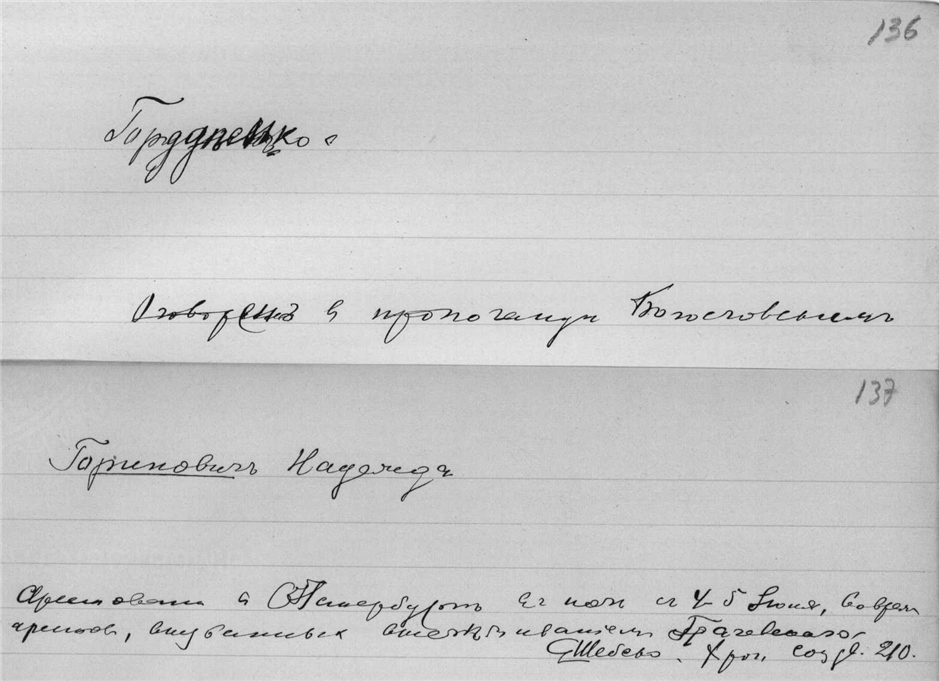 136
Гордиенко.
Оговоренъ въ пропаганде Богословскимъ
137
Гориновичъ Надежда
Арестована в С Петербурге въ ночь с 4-5 Июня, во время
арестов, вызванных выслеживанием Грачевского,
Шебеко. Хрон. соц. д. 210.